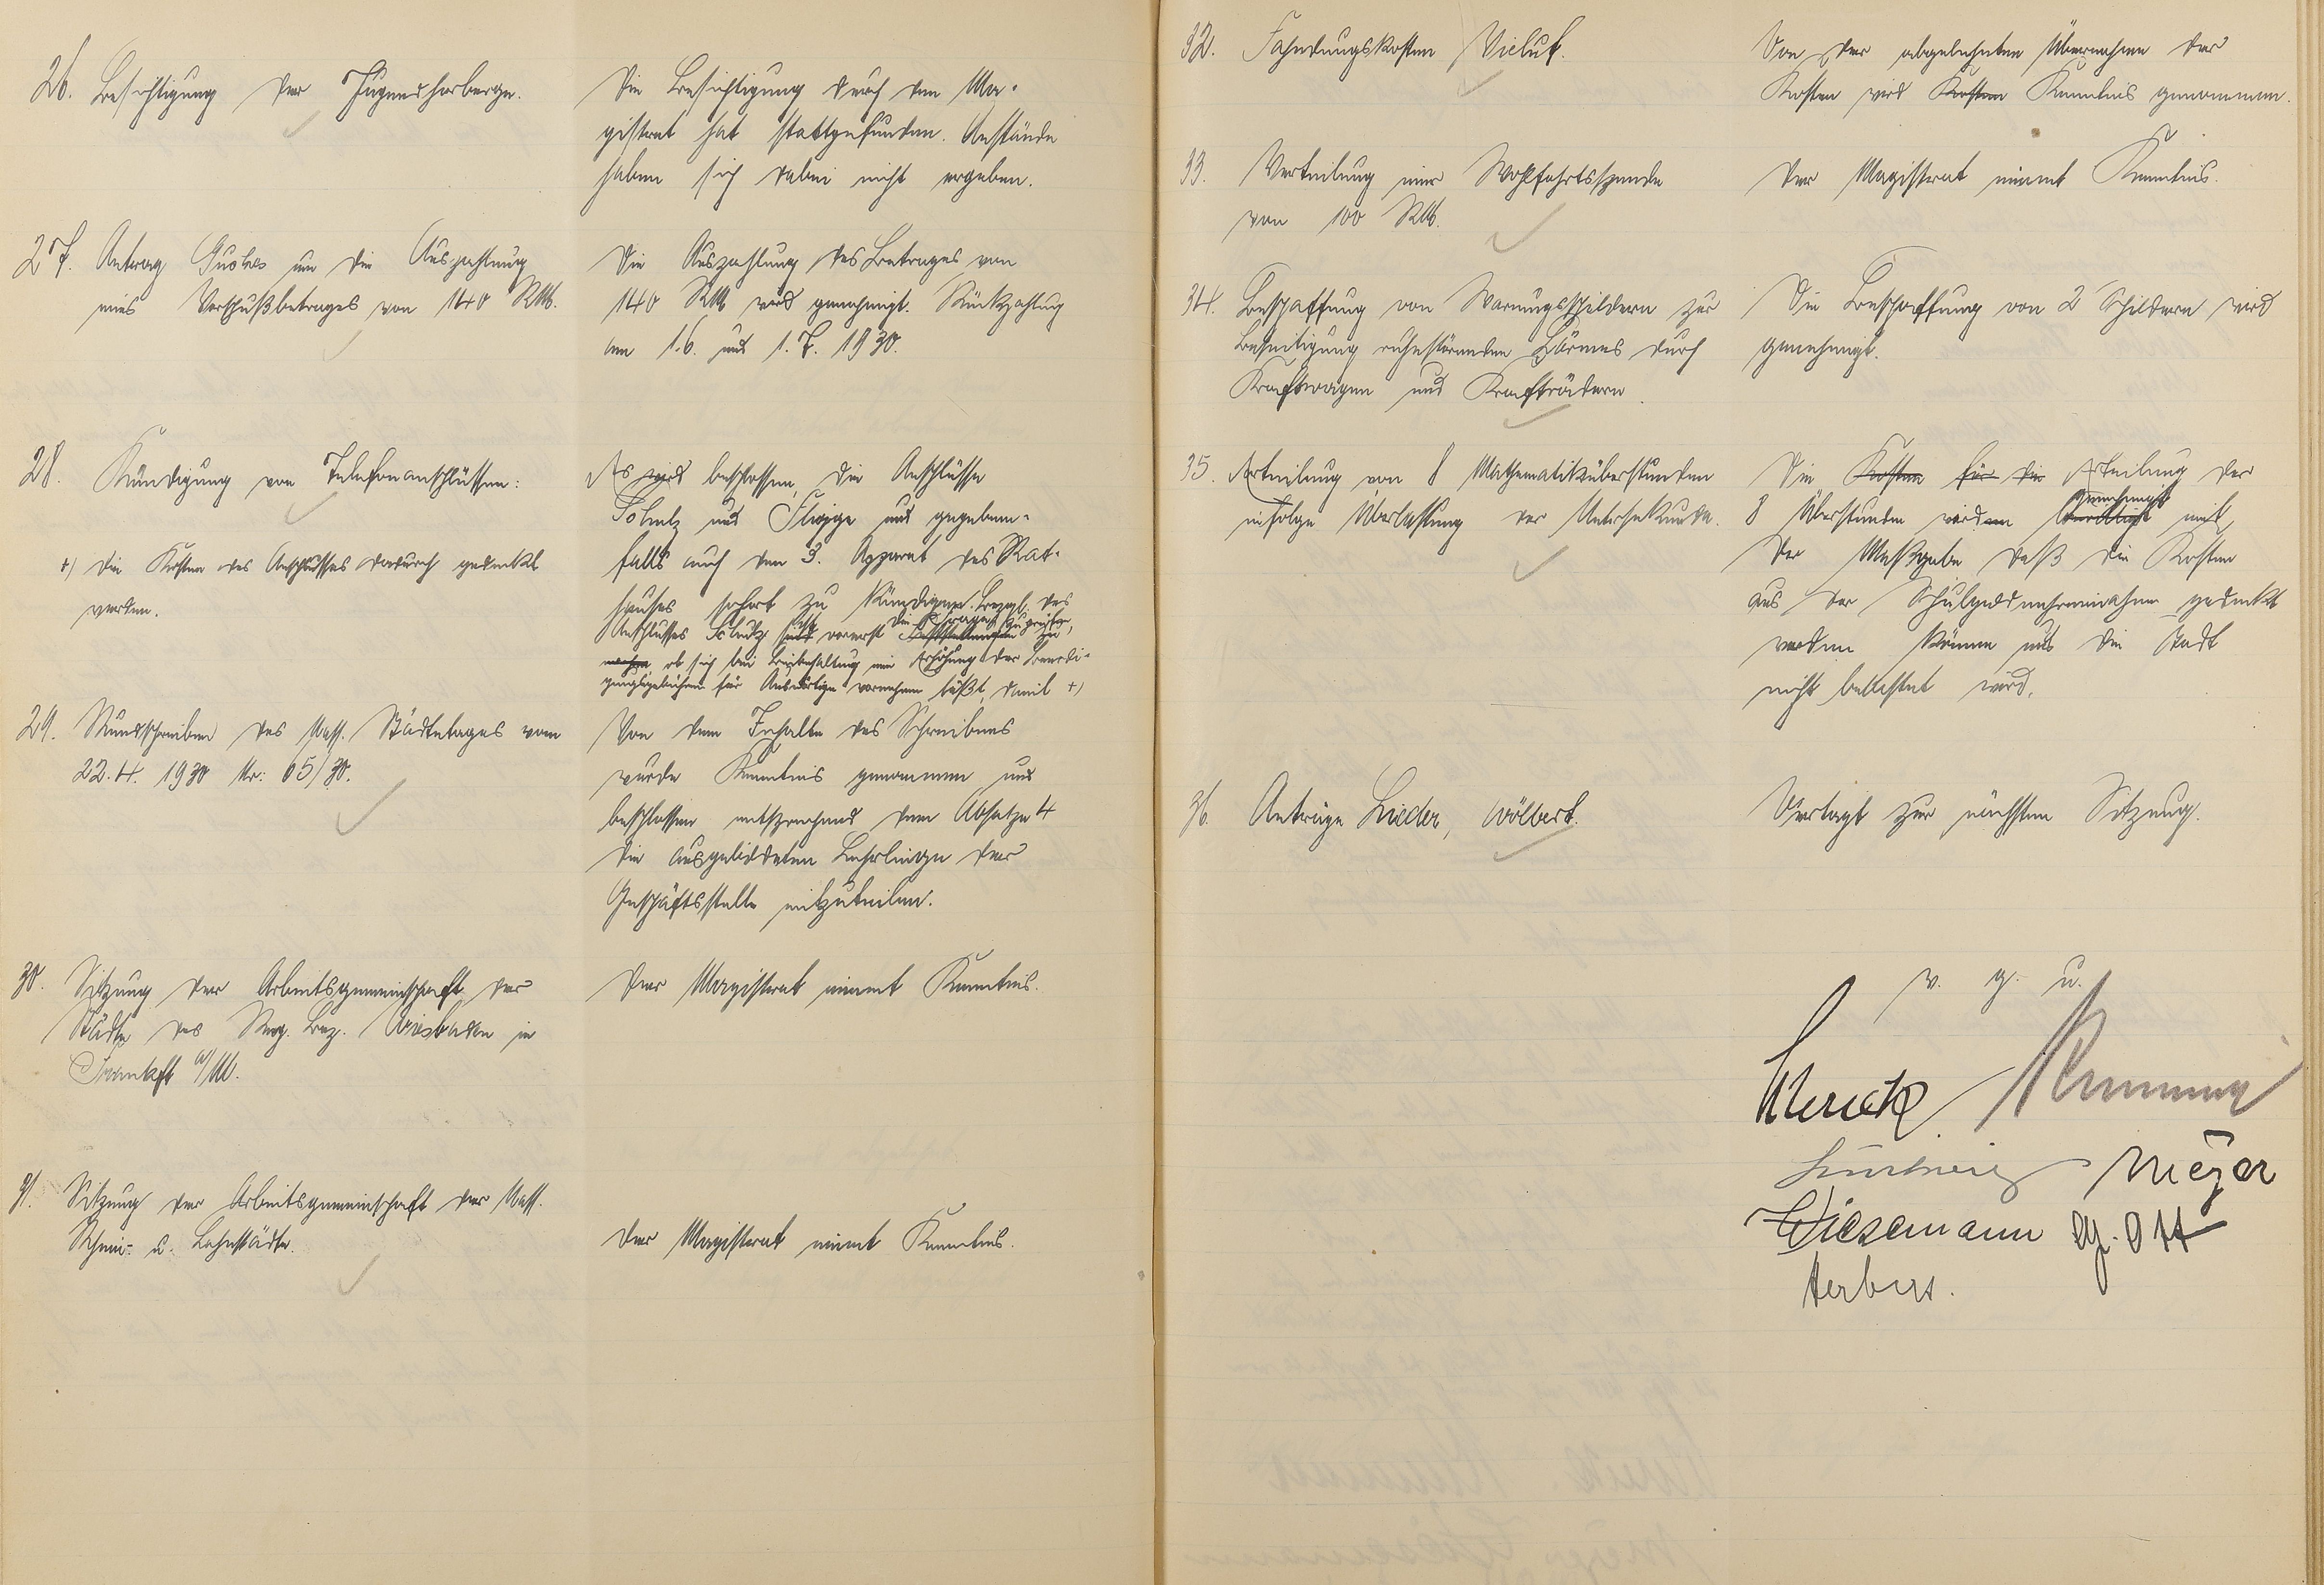 26. Besichtigung der Jugendherberge.
Die Besichtigung durch den Ma-
gistrat hat stattgefunden. Anstände
haben sich dabei nicht ergeben.
27. Antrag um die Auszahlung
eines Vorschußbetrages von 140 RM.
Die Auszahlung des Betrages von
140 RM wird genehmigt. Rückzahlung
am 1.6. und 1.7. 1930.
28. Kündigung von Telefonanschlüssen:
+) die Kosten des Anschlusses dadurch gedeckt
werden.
Es wird beschlossen, die Anschlüsse
Schulz und und gegebenen-
falls auch den 3. Apparat des Rat-
hauses sofort zu kündigen. Bezgl. des
Anschlusses Schulz ist vorerst die Frage zu prüfen,
ob sich bei Beibehaltung eine Erhöhung der Beerdi-
gungsgebühren für Auswärtige vornehmen läßt, damit +)
29. Rundschreiben des Nass. Städtetages vom
22.4. 1930 Nr: 65/30.
Von dem Inhalte des Schreibens
wurde Kenntnis genommen und
beschlossen entsprechend dem Absatze 4
die ausgebildeten Lehrlinge der
Geschäftsstelle mitzuteilen.
30. Sitzung der Arbeitsgemeinschaft der
Städte des Reg. Bez. Wiesbaden in
Frankft a/M.
Der Magistrat nimmt Kenntnis.
31. Sitzung der Arbeitsgemeinschaft der Nass.
Rhein- u. Lahnstädte.
Der Magistrat nimmt Kenntnis.
32. Fahndungskosten
Von der abgelehnten Übernahme der
Kosten wird Kosten Kenntnis genommen.
33. Verteilung einer Wohlfahrtsspende
von 100 RM.
Der Magistrat nimmt Kenntnis.
34. Beschaffung von Warnungsschildern zur
Beseitigung ruhestörenden Lärmes durch
Kraftwagen und Krafträdern.
Die Beschaffung von 2 Schildern wird
genehmigt.
35. Erteilung von 8 Mathematiküberstunden
infolge Überlastung der Untersekunda.
Die Kosten für die Erteilung der
8 Überstunden werden genehmigt mit
der Maßgabe daß die Kosten
aus der Schulgeldmehreinnahme gedeckt
werden können und die Stadt
nicht belastet wird.
36. Anträge Lieder, Wölbert.
Vertagt zur nächsten Sitzung.
v. g. u.
Meyer
Wiesemann Ott
Herbers.